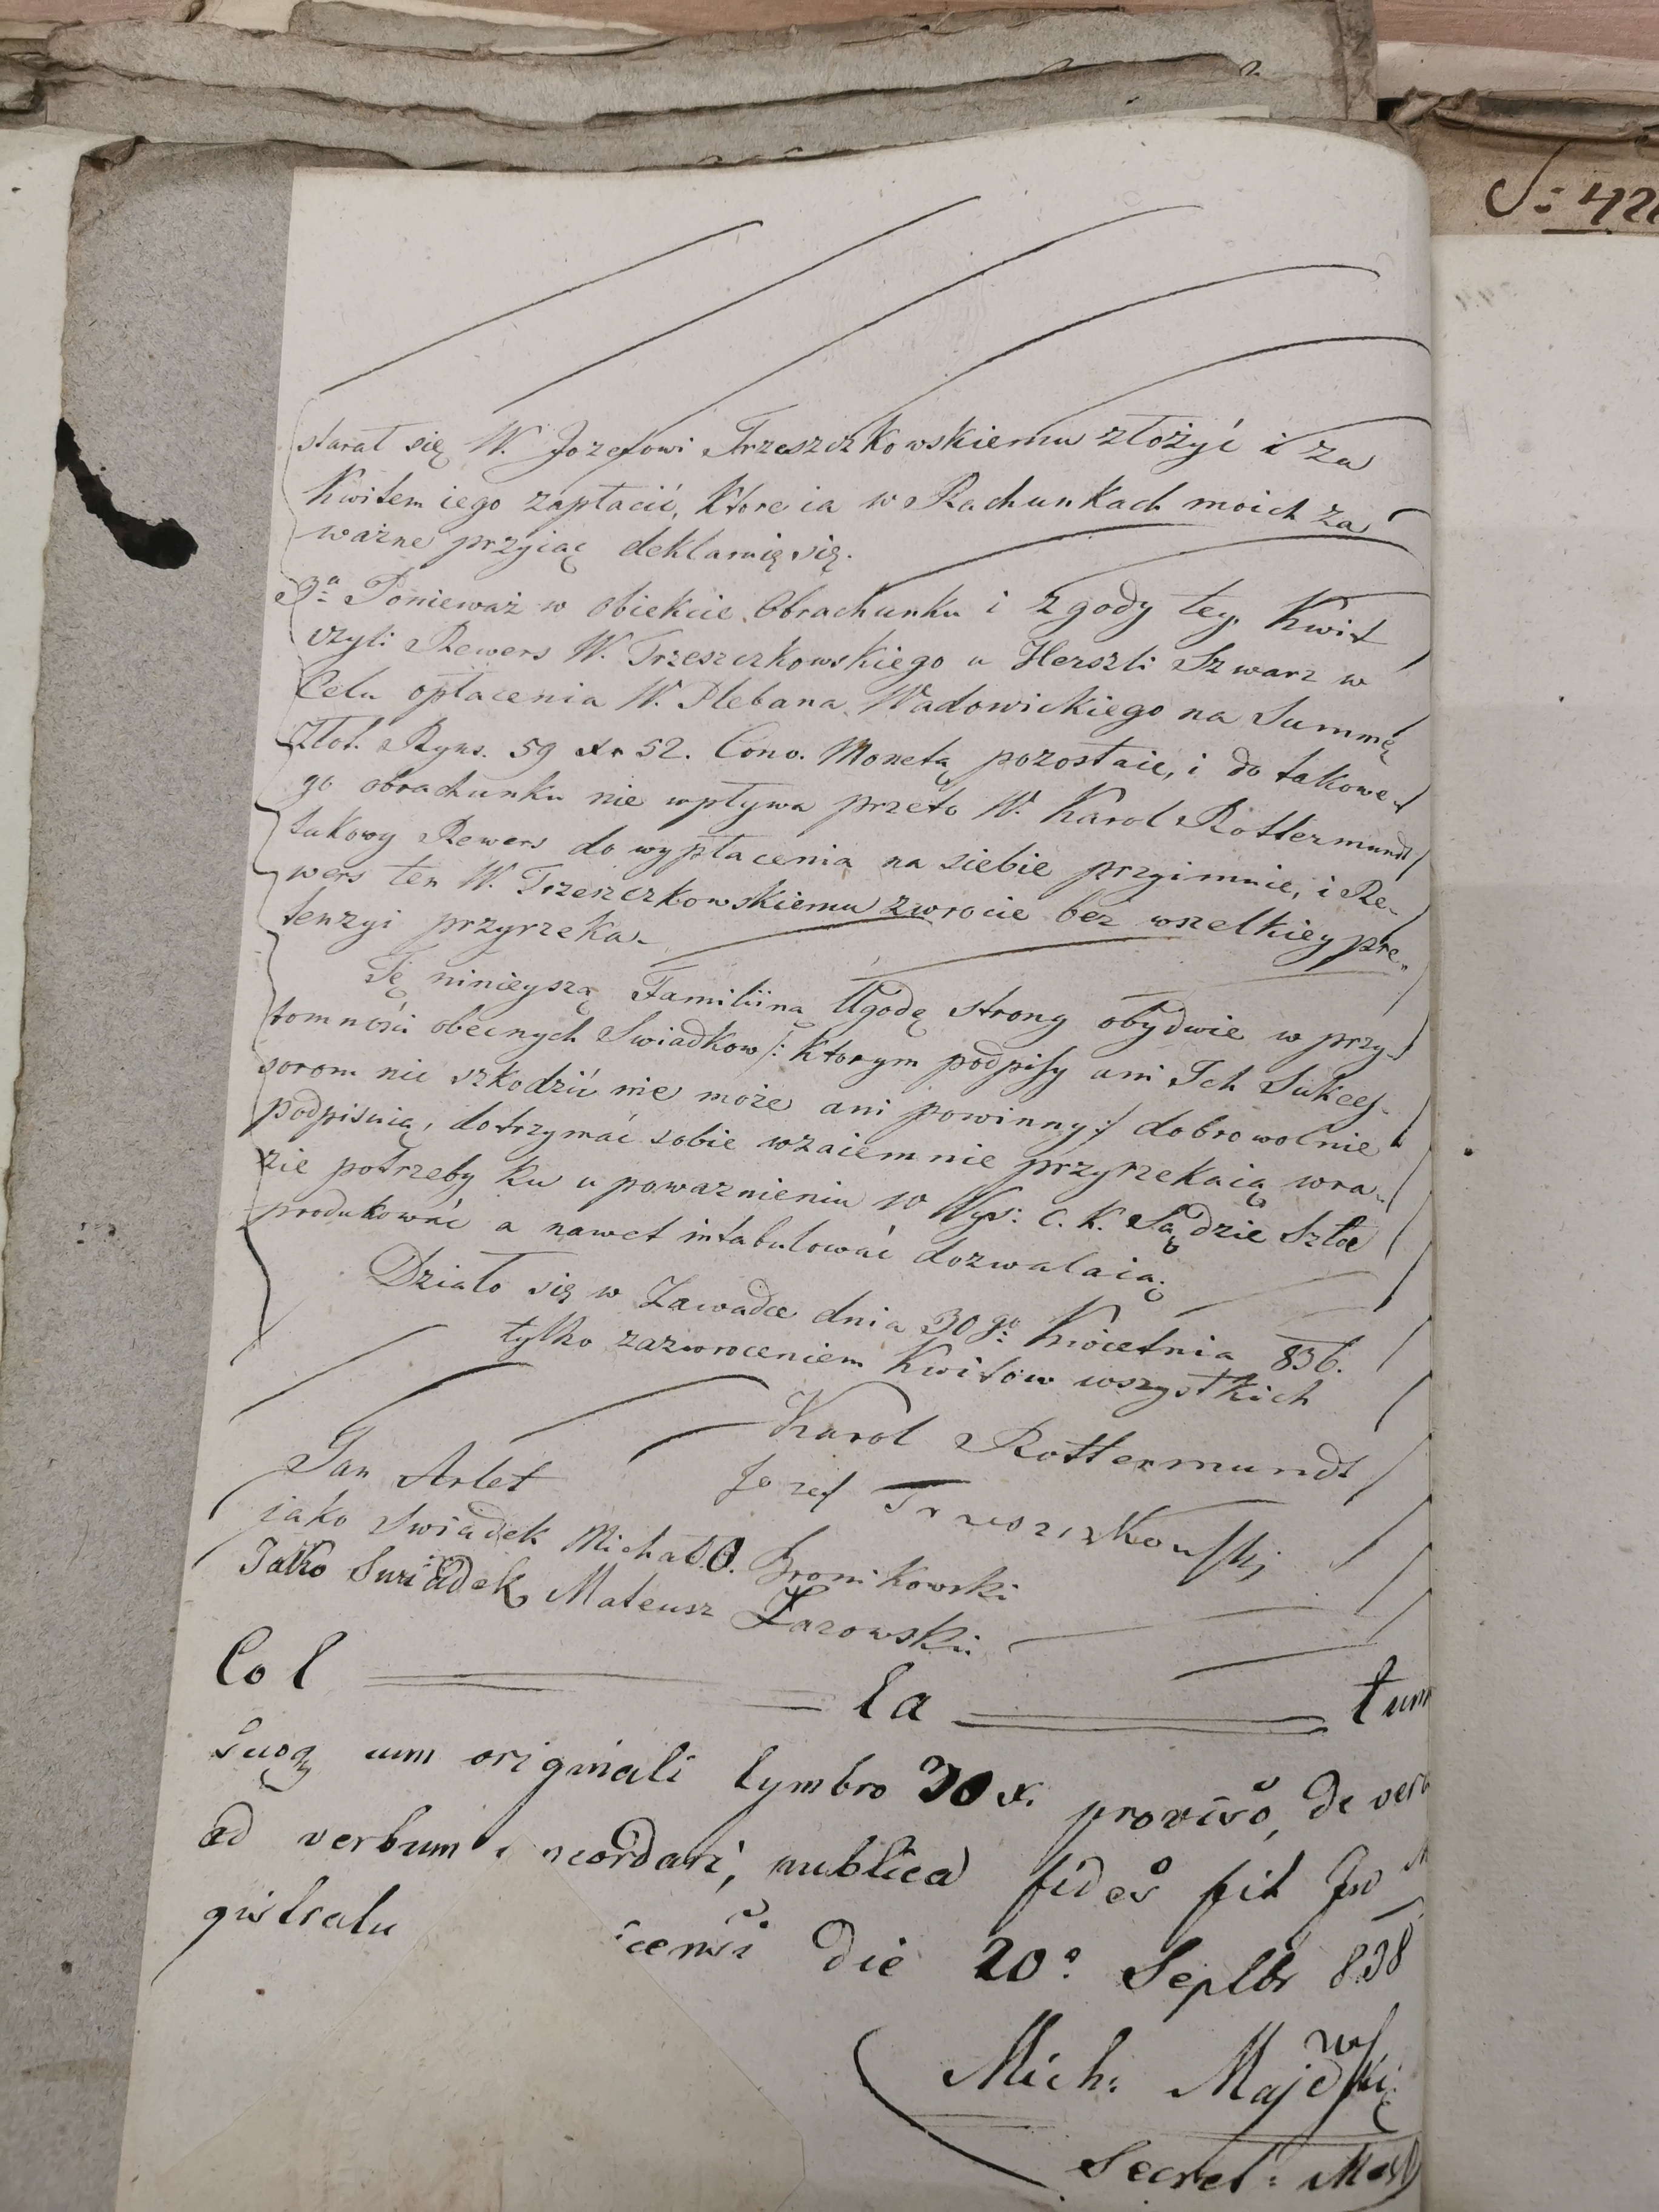 S: 420
starał się W. Jozefowi Trzeszczkowskiemu złożyć i za
Kwitem iego zapłacić, Które ia w Rachunkach moich za
ważne przyiąć deklaruię się.
3a Ponieważ w obiekcie Obrachunku i zgody tey Kwit
czyli Rewers W. Trzeszczkowskiego u Herszli Szwarz w
Celu opłacenia W. Plebana Wadowickiego na Summę
Złot. Ryns. 59 Xr 52. Conv. Monetą pozostaie, i do takowe-
go obrachunku nie wpływa przeto W. Karol Rottermundt
takowy Rewers do wypłacenia na siebie przyimuie, i Re-
wers ten W. Trzeszczkowskiemu zwrocie bez wszelkiey pre-
tenzyi przyrzeka.
Tę ninieyszą Familiiną Ugodę strony obydwie w przy-
tomności obecnych Swiadkow /: Ktorym podpisy ani Ich Sukces-
sorom nic szkodzić nie może ani powinny :/ dobrowolnie
podpisuią, dotrzymać sobie wzaiemnie przyrzekaią w ra-
zie potrzeby ku upoważnieniu w Wys: C. K. Sądzie Szlae
produkować a nawet intabulować dozwalaią.
Działo się w Zawadce dnia 30go Kwietnia 836.
tylko zazwroceniem Kwitow wszystkich
Karol Rottermundt
Jan Arlet Jozef Trzeszczkowski
jako Swiadek Michał O. Bronikowski
Jako Swiadek Mateusz Zarowski
Col la tum
Suoq cum originali tymbro 30 x. proviso, de verb
ad verbum ncordari, publica fides fit In M
gistratu censi die 20a Septbr 838
Mich: Majewski
Secret: